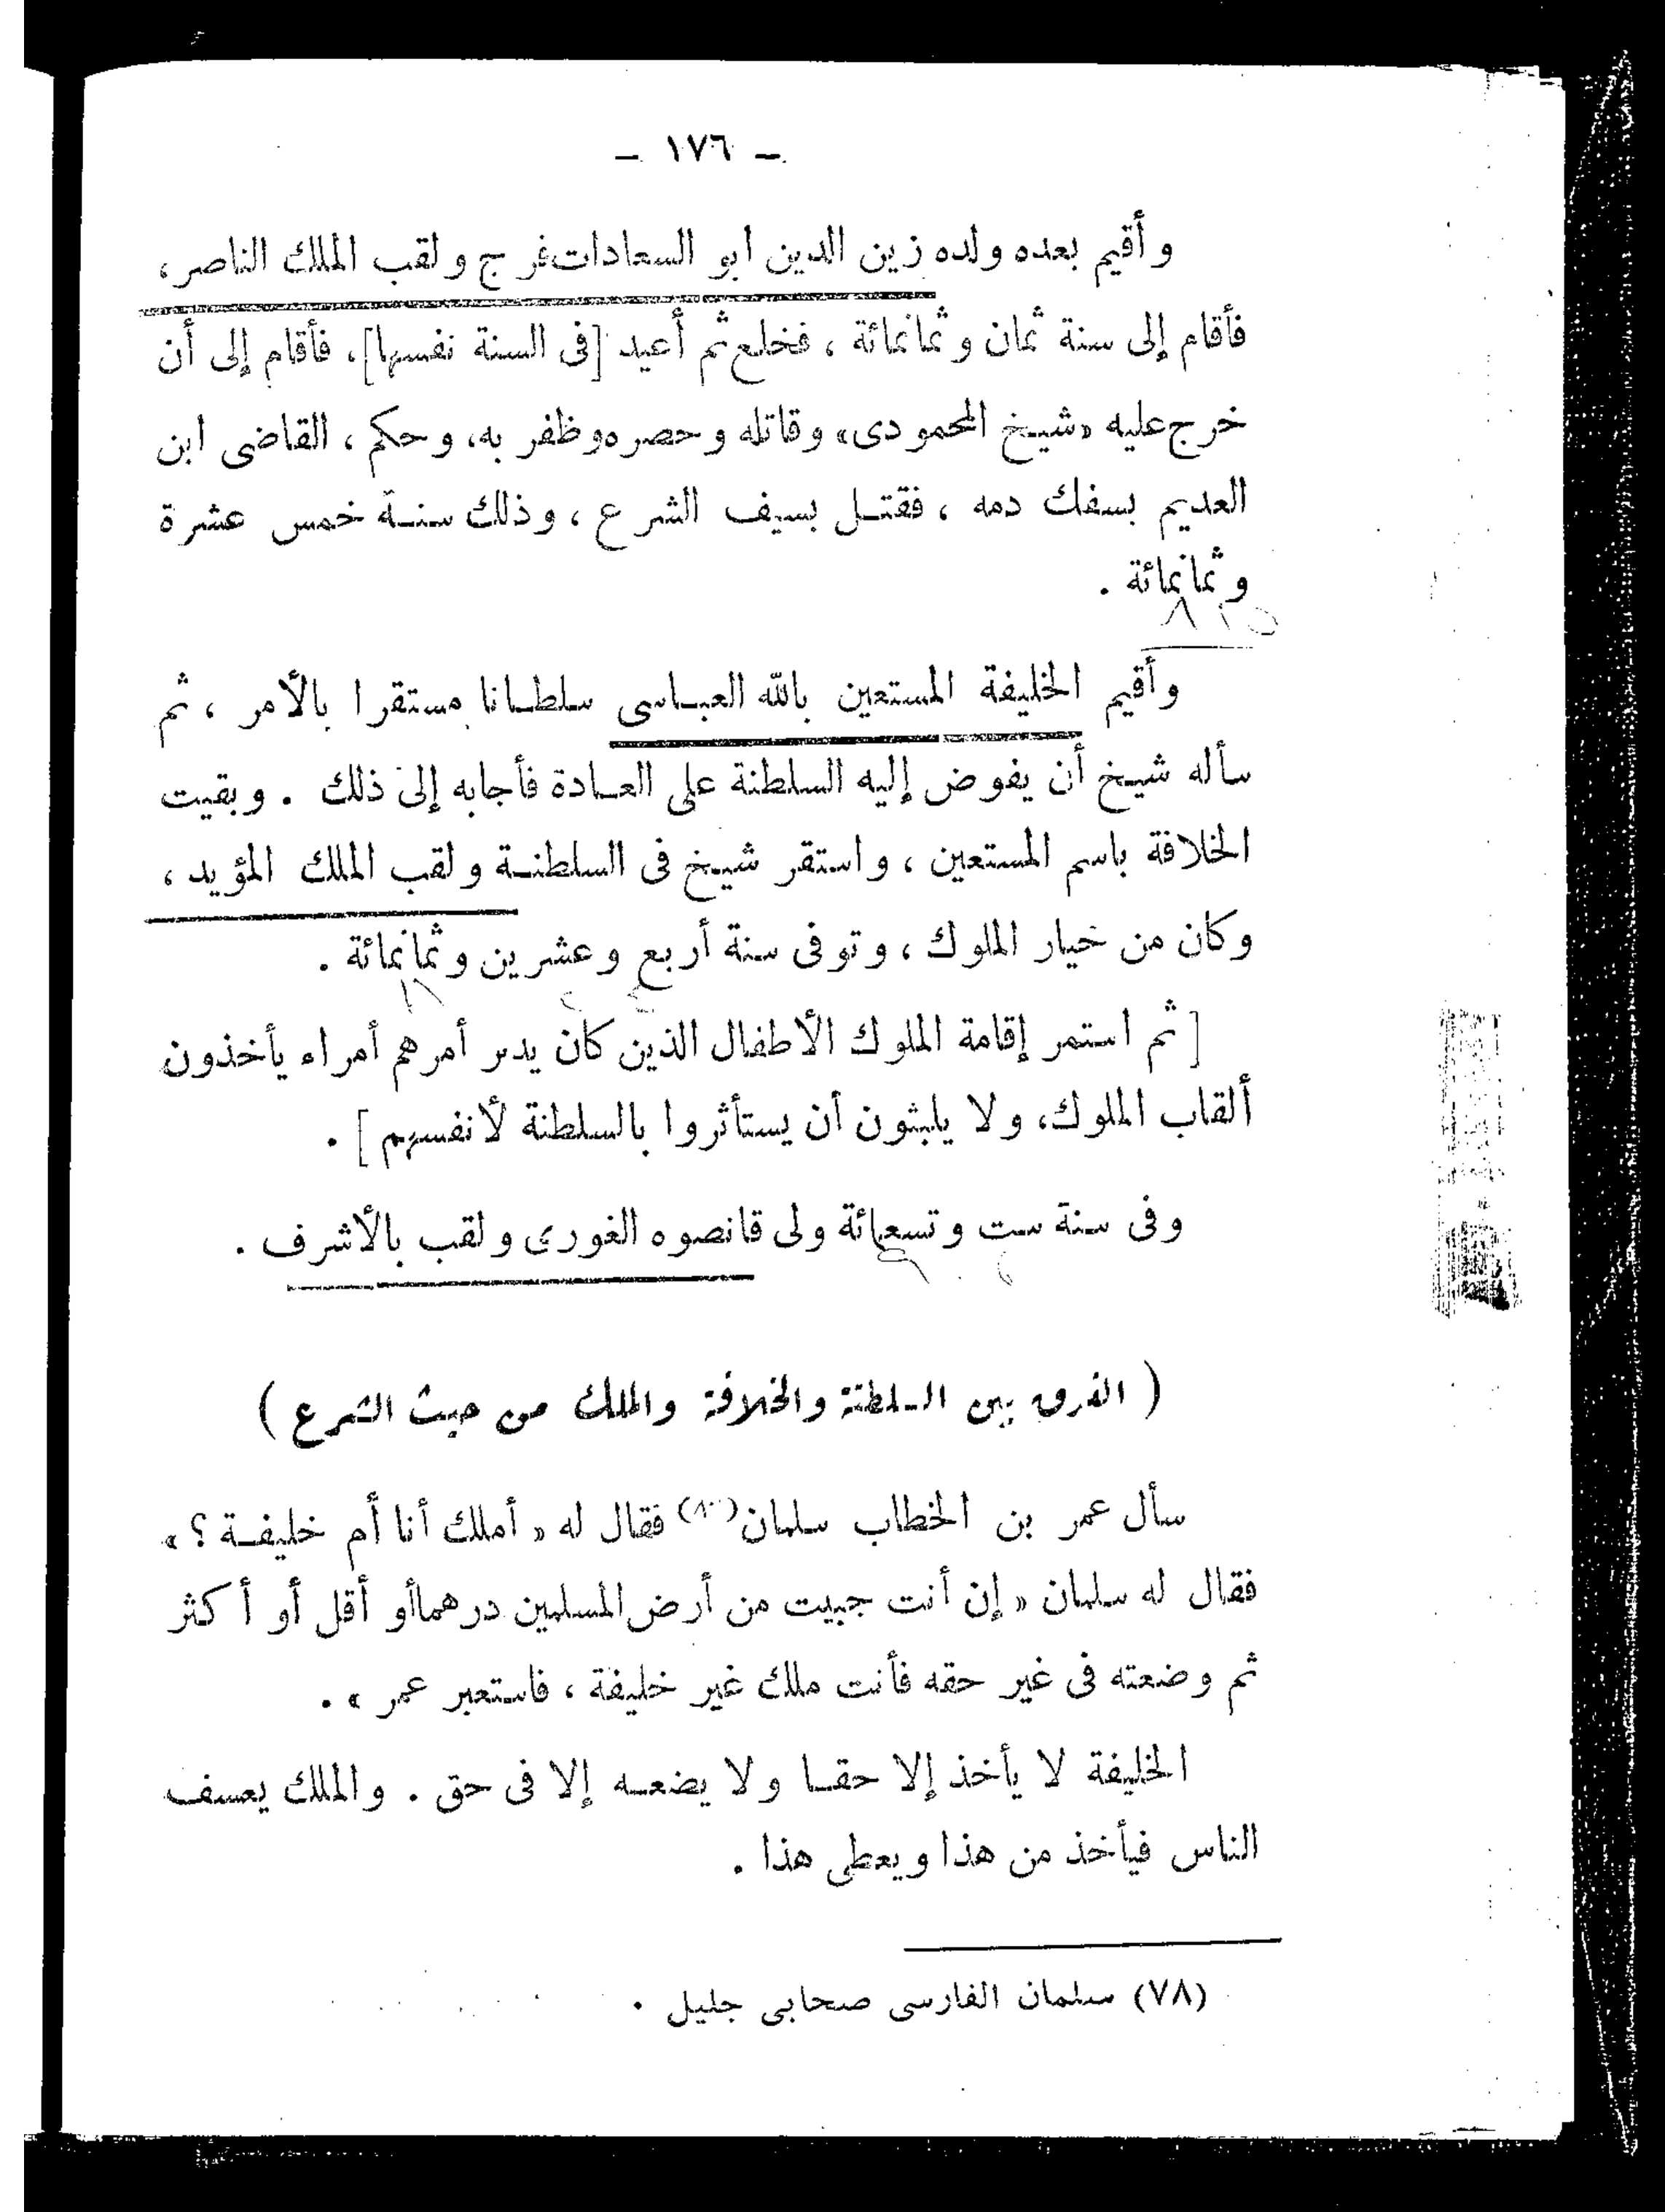 – ١٧٦ –
وأقيم بعده ولده زين الدين أبو السعادات فرج ولقب الملك الناصر،
فأقام إلى سنة ثمان وثمانمائة ، فخلع ثم أعيد [فى السنة نفسها]، فأقام إلى أن
خرج عليه «شيخ المحمودى» وقاتله وحصره وظفر به، وحكم ، القاضى ابن
العديم بسفك دمه ، فقتل بسيف الشرع ، وذلك سنة خمس عشرة
وثمانمائة .
٨١٥
وأقيم الخليفة المستعين بالله العباسى سلطانا مستقرا بالأمر ، ثم
سأله شيخ أن يفوض إليه السلطنة على العادة فأجابه إلى ذلك . وبقيت
الخلافة باسم المستعين ، واستقر شيخ فى السلطنة ولقب الملك المؤيد ،
وكان من خيار الملوك ، وتوفى سنة أربع وعشرين وثمانمائة .
[ ثم استمر إقامة الملوك الأطفال الذين كان يدبر أمرهم أمراء يأخذون
ألقاب الملوك، ولا يلبثون أن يستأثروا بالسلطنة لأنفسهم ] .
وفى سنة ست وتسعمائة ولى قانصوه الغورى ولقب بالأشرف .
( الفرق بين السلطنة والخلافة والملك من حيث الشرع )
سأل عمر بن الخطاب سلمان فقال له « أملك أنا أم خليفة ؟ »
فقال له سلمان « إن أنت جبيت من أرض المسلمين درهما أو أقل أو أكثر
ثم وضعته فى غير حقه فأنت ملك غير خليفة ، فاستعبر عمر » .
الخليفة لا يأخذ إلا حقا ولا يضعه إلا فى حق . والملك يعسف
الناس فيأخذ من هذا ويعطى هذا .
(٧٨) سلمان الفارسى صحابى جليل .